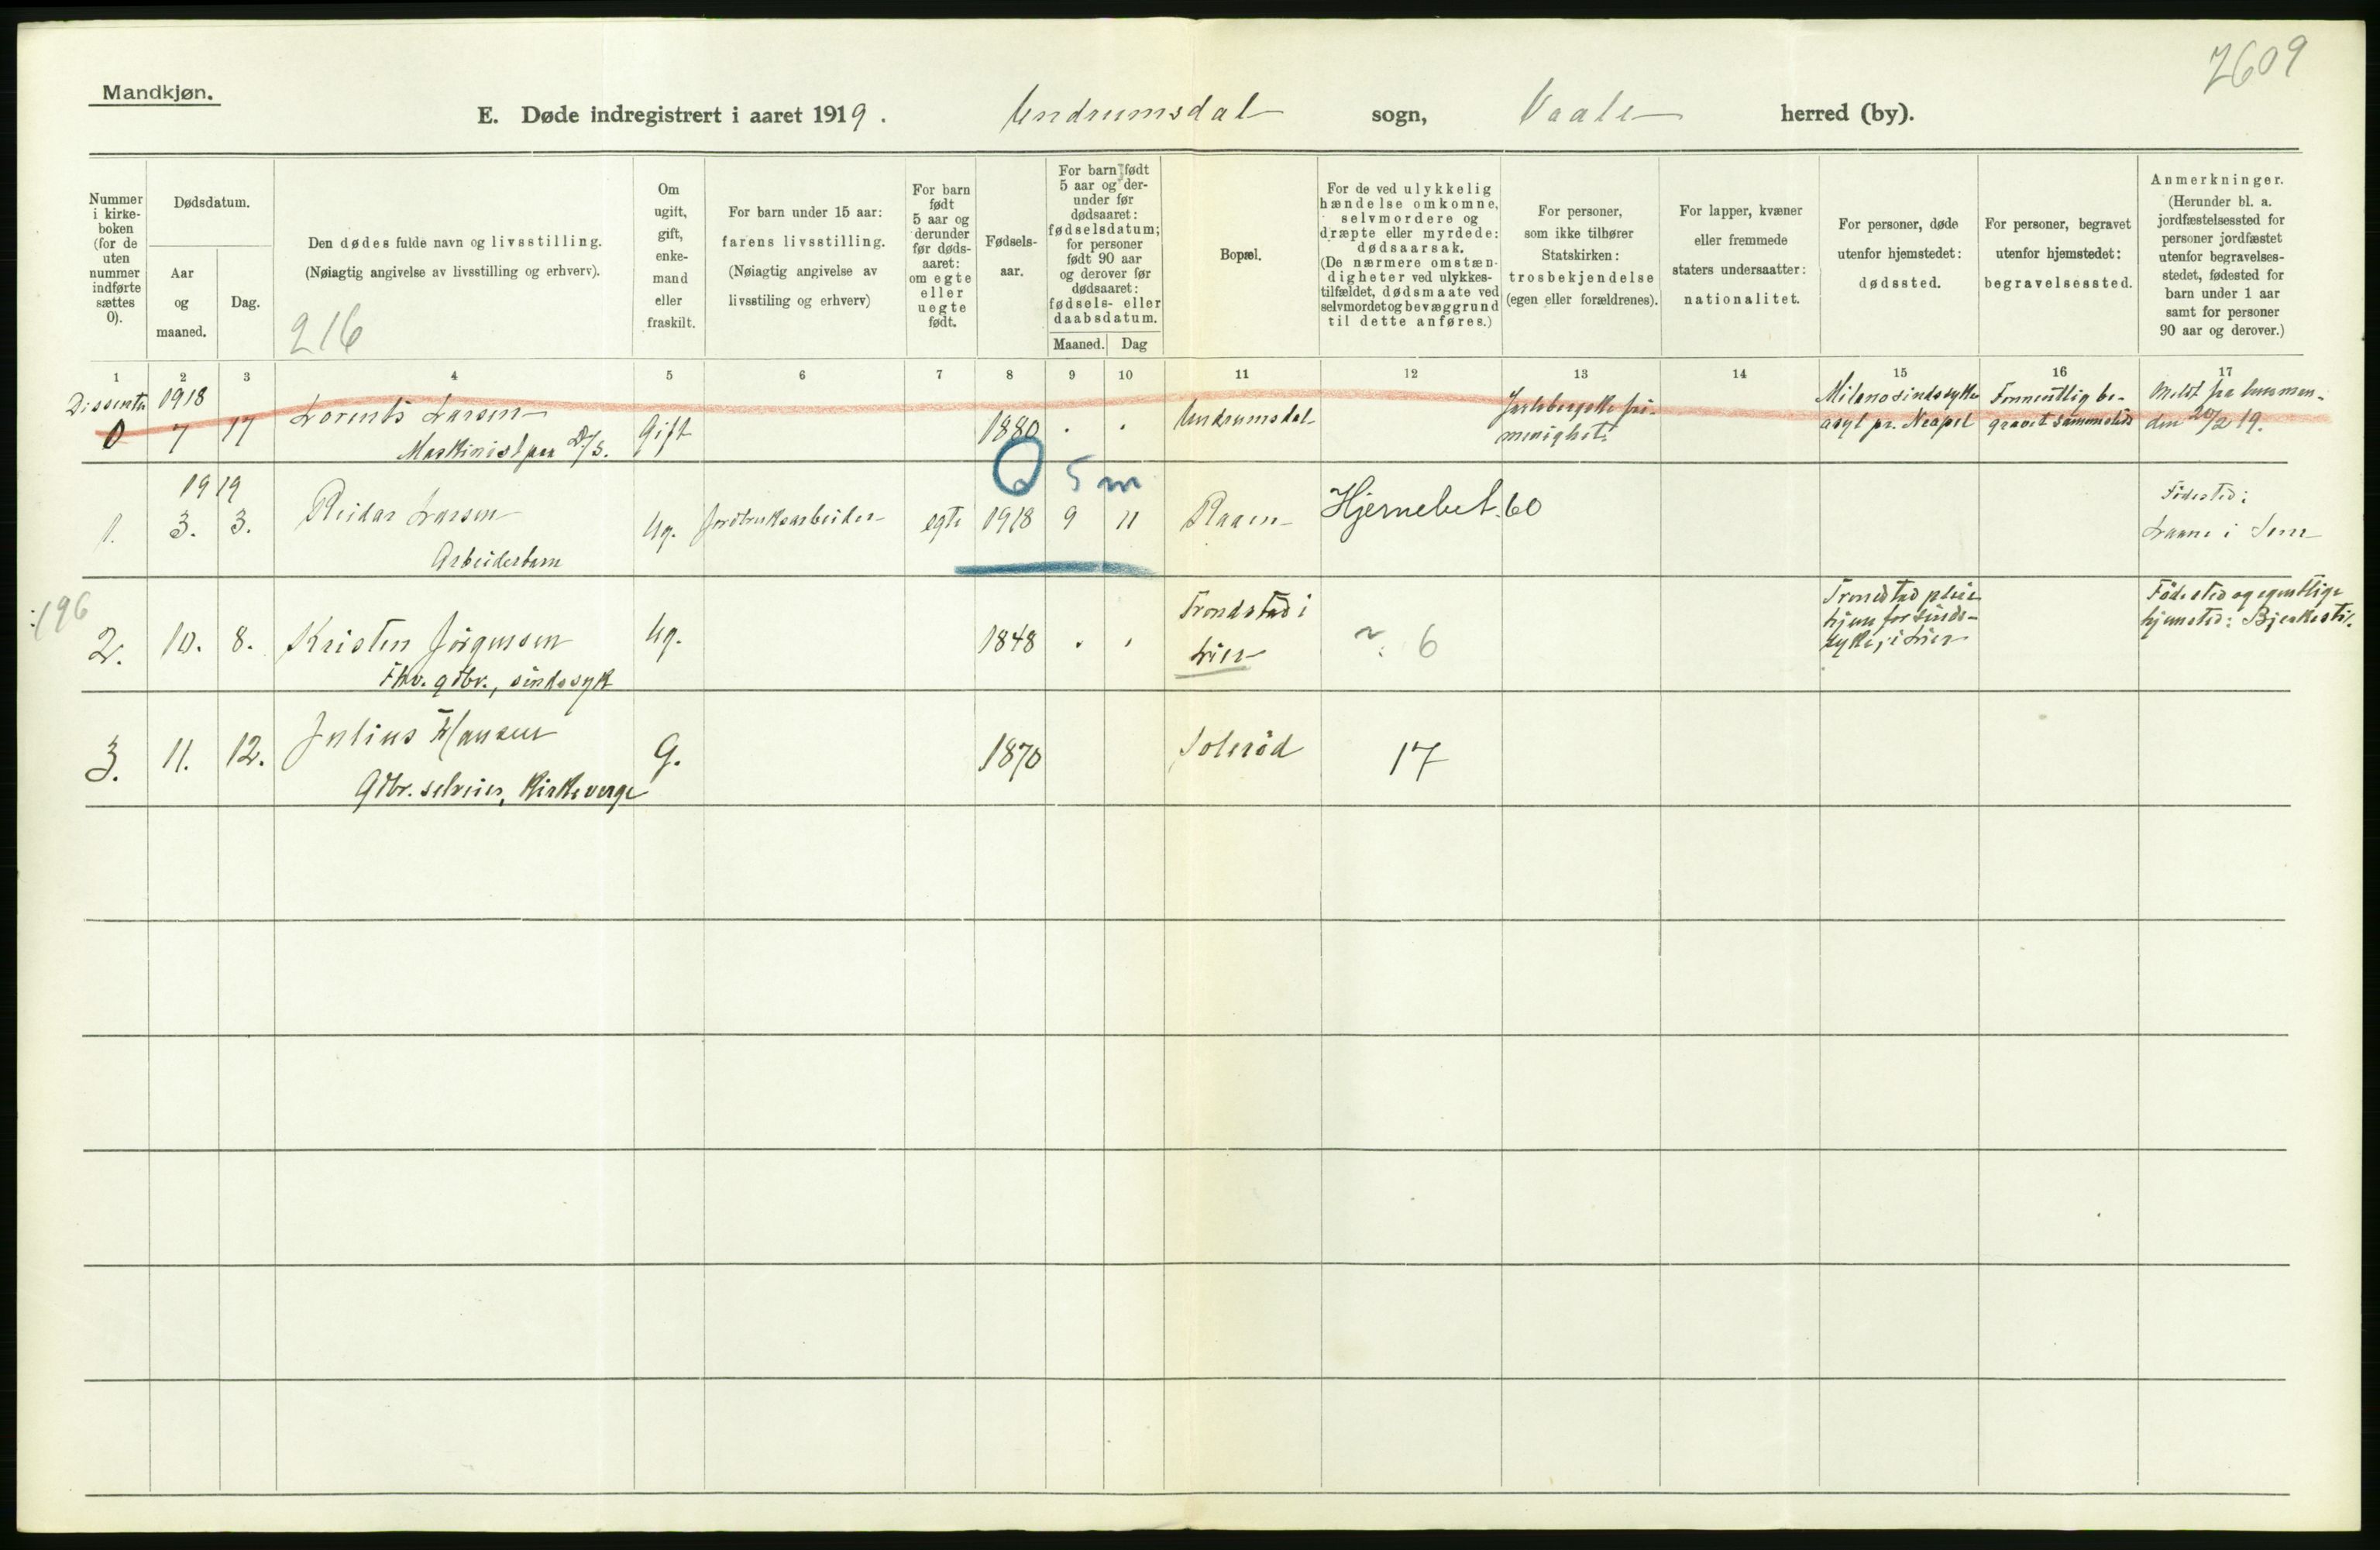 7609
Mandkjøn.
E. Døde indregistrert i aaret 1919. Undrumsdal sogn, Vaale herred (by).
Nummer
i kirke-
boken
(for de
uten
nummer
indførte
sættes
0).
Dødsdatum.
Aar
og
maaned.
Dag.
Den dødes fulde navn og livsstilling.
(Nøiagtig angivelse av livsstilling og erhverv).
216
Om
ugift,
gift,
enke-
mand
eller
fraskilt.
For barn under 15 aar:
farens livsstilling.
(Nøiagtig angivelse av
livsstiling og erhverv)
For barn
født
5 aar og
derunder
før døds-
aaret:
om egte
eller
uegte
født.
Fødsels-
aar.
For barn født
5 aar og der-
under før
dødsaaret:
fødselsdatum;
for personer
født 90 aar
og derover før
dødsaaret:
fødsels- eller
daabsdatum.
Maaned. Dag
Bopæl.
For de ved ulykkelig
hændelse omkomne,
selvmordere og
dræpte eller myrdede:
dødsaarsak.
(De nærmere omstæn-
digheter ved ulykkes-
tilfældet, dødsmaate ved
selvmordet og bevæggrund
til dette anføres.)
For personer,
som ikke tilhører
Statskirken:
trosbekjendelse
(egen eller forældrenes).
For lapper, kvæner
eller fremmede
staters undersaatter:
nationalitet.
For personer, døde
utenfor hjemstedet:
dødssted.
For personer, begravet
utenfor hjemstedet:
begravelsessted.
Anmerkninger.
(Herunder bl. a.
jordfæstelsessted for
personer jordfæstet
utenfor begravelses-
stedet, fødested for
barn under 1 aar
samt for personer
90 aar og derover.)
1 2 3 4 5 6 7 8 9 10 11 12 13 14 15 16 17
Dissenter
0
1918
7 17
Lorents Larsen
Maskinist paa D/S.
Gift
1880 . .
Undrumsdal
Jarlsbergske fri-
menighet.
Milano sindssyke
asyl pr. Neapel
Formentlig be-
gravet sammesteds
Meldt fra lensman-
den 20/2 19.
1.
1919
3. 3.
Reidar Larsen
Arbeiderbarn
Ug.
Jordbruksarbeider
egte
5 m
1918 9 11
Raaen
Hjernebet. 60
Födested:
i Sem
196
2. 10. 8.
Kristen Jörgensen
Fhv. gdbr., sindssyk
Ug.
1848 . .
Trondstad i
Lier
6
Trondstad pleie
hjem for sinds-
syke, i Lier
Födested og egentlige
hjemsted: Bjerkesti.
3. 11. 12.
Julius Hansen
Gdbr. selveier, Kirkeverge
G.
1870
Soleröd
17